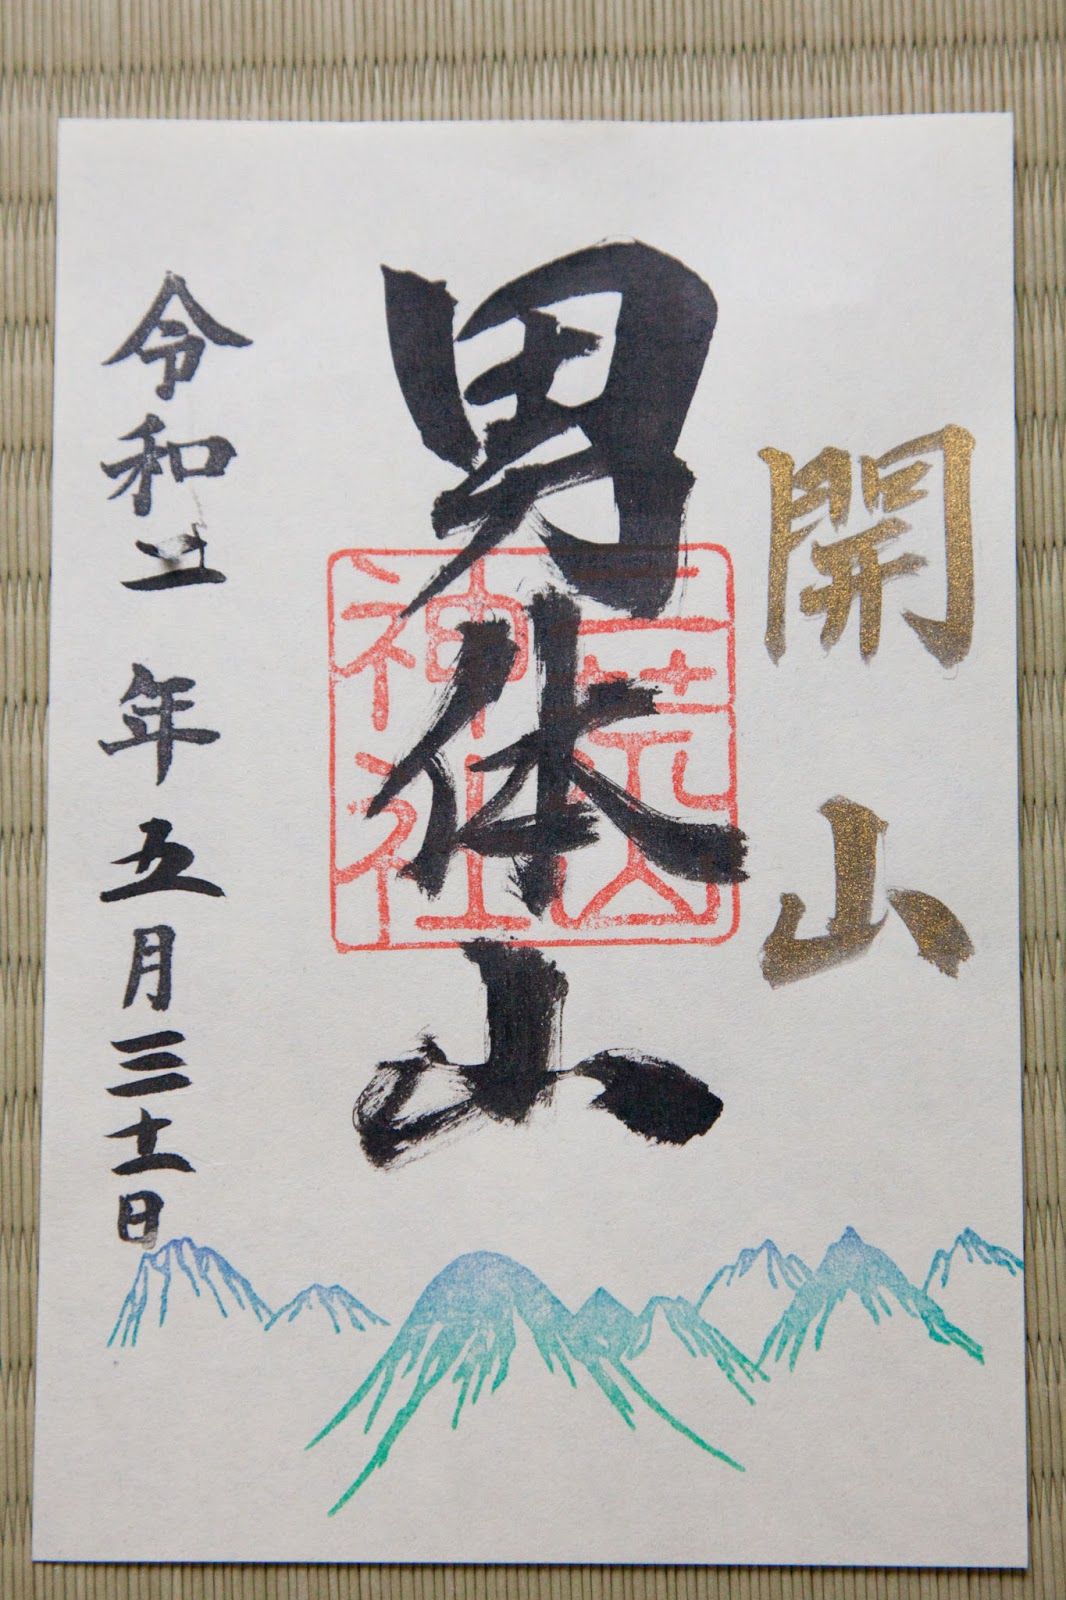 開山
男体山
二荒山
神社
令和二年五月三十一日